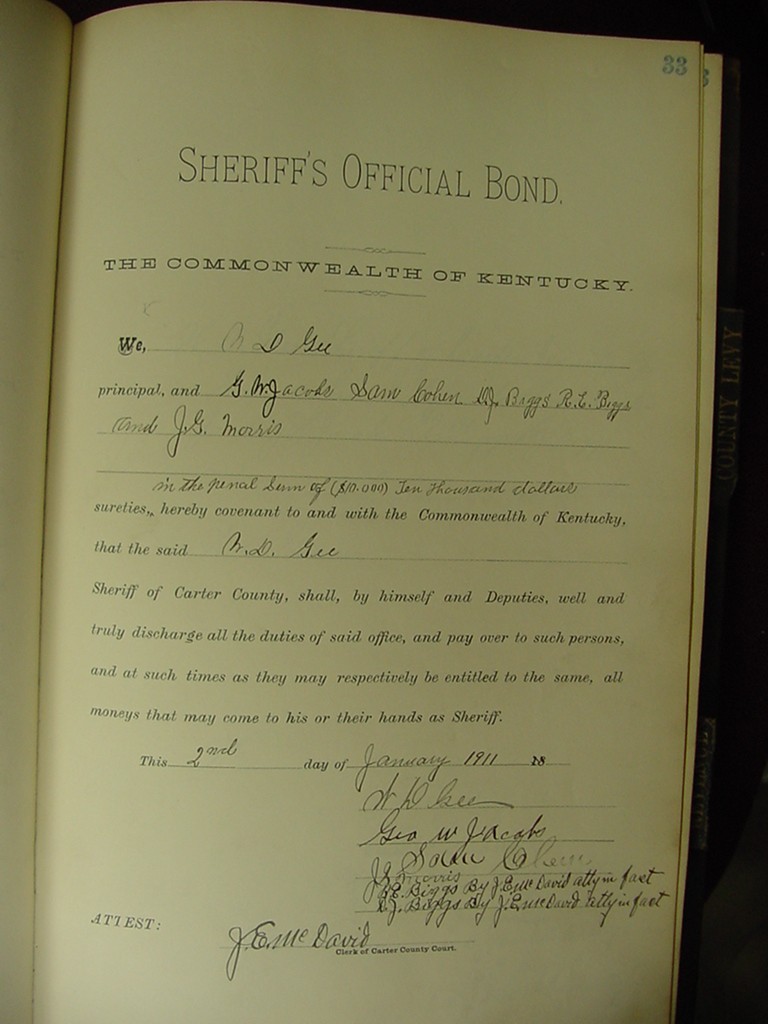 33
SHERIFF'S OFFICIAL BOND.
THE COMMONWEALTH OF KENTUCKY.
We, W D Gee
principal, and G. W. Jacobs Sam Cohen D.J. Biggs R.E. Biggs
and J.G. Morris
in the penal Sum of ($10.000) Ten thousand dollars
sureties, hereby covenant to and with the Commonwealth of Kentucky,
that the said W. D. Gee
Sheriff of Carter County, shall, by himself and Deputies, well and
truly discharge all the duties of said office, and pay over to such persons,
and at such times as they may respectively be entitled to the same, all
moneys that may come to his or their hands as Sheriff.
This 2nd day of January 1911 18
W D Gee
Geo W Jacobs
Sam Cohen
J G Morris
R.E. Biggs By J.E. McDavid atty in fact
D.J. Biggs By J.E. McDavid atty in fact
ATTEST:
J. E. McDavid
Clerk of Carter County Court.
COUNTY LEVY